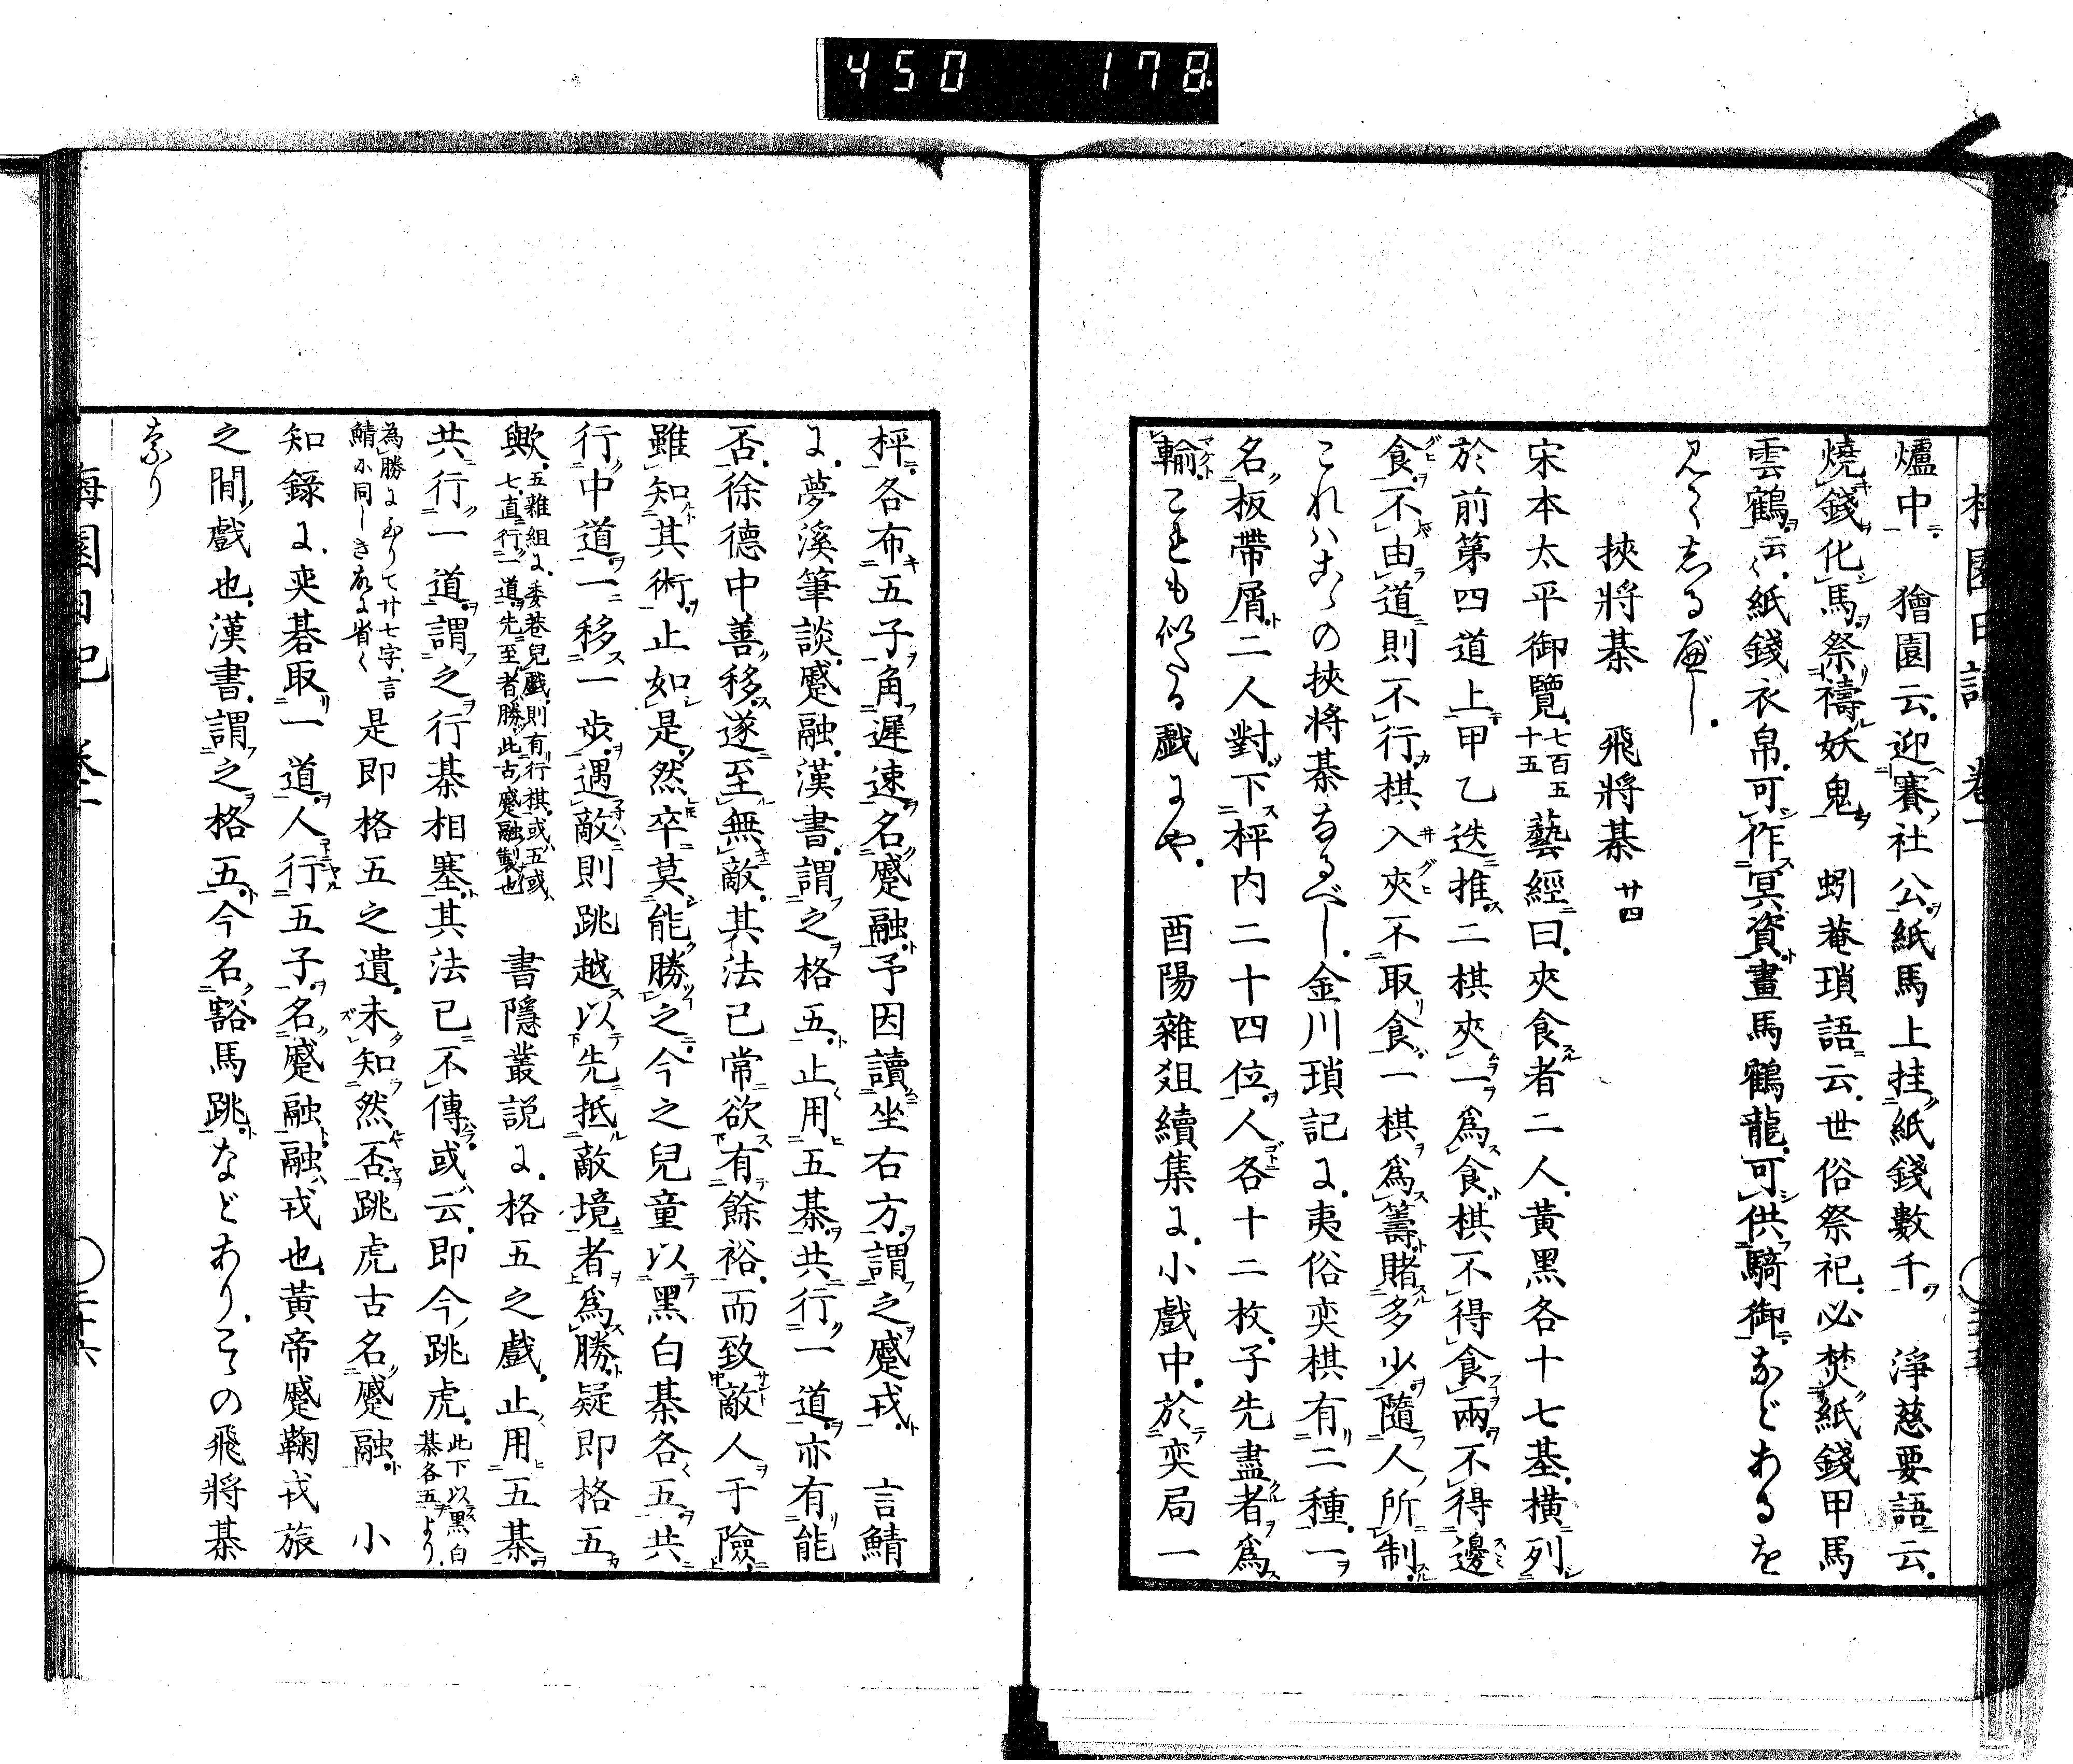 450 178
梅園日記 卷一
爐中 獪園云迎賽社公紙馬上挂紙錢數千 淨慈要語云
燒錢化馬祭禱妖鬼 蚓菴瑣語云世俗祭祀必焚紙錢甲馬
雲鶴云〻紙錢衣帛可作冥資畫馬鶴龍可供騎御などあるを
見てしるべし
挾將棊 飛將棊 廿四
宋本太平御覽七百五十五藝經曰夾食者二人黃黑各十七棊橫列
於前第四道上甲乙迭推二棋夾一爲食棋不得食兩不得邊
食不由道則不行棋入夾不取食一棋爲籌賭多少隨人所制
これハこゝの挾將棊なるべし金川瑣記に夷俗奕棋有二種一
名板帶屑二人對下枰内二十四位人各十二枚子先盡者爲
輸これも似たる戲にや 酉陽雜俎續集に小戲中於奕局一
枰各布五子角遲速名蹙融予因讀坐右方謂之蹙戎 言鯖
に夢溪筆談蹙融漢書謂之格五止用五棊共行一道亦有能
否徐德中善移遂至無敵其法已常欲有餘裕而致敵人于險
雖知其術止如是然卒莫能勝之今之兒童以黑白棊各五共
行中道一移一歩遇敵則跳越以先抵敵境者爲勝疑即格五
歟五雜組に委巷兒戲則有行棋或五或七直行一道先至者勝此古蹙融製也 書隱叢説に格五之戲止用五棊
共行一道謂之行棊相塞其法已不傳或云即今跳虎此下以黑白棊各五より
為勝にいたりて廿七字言鯖に同じき故に省く是即格五之遺未知然否跳虎古名蹙融 小
知錄に夾碁取一道人行五子名蹙融融戎也黃帝蹙鞠戎旅
之間戲也漢書謂之格五今名豁馬跳などありこゝの飛將棊
なり
梅園日記 卷一 二十六